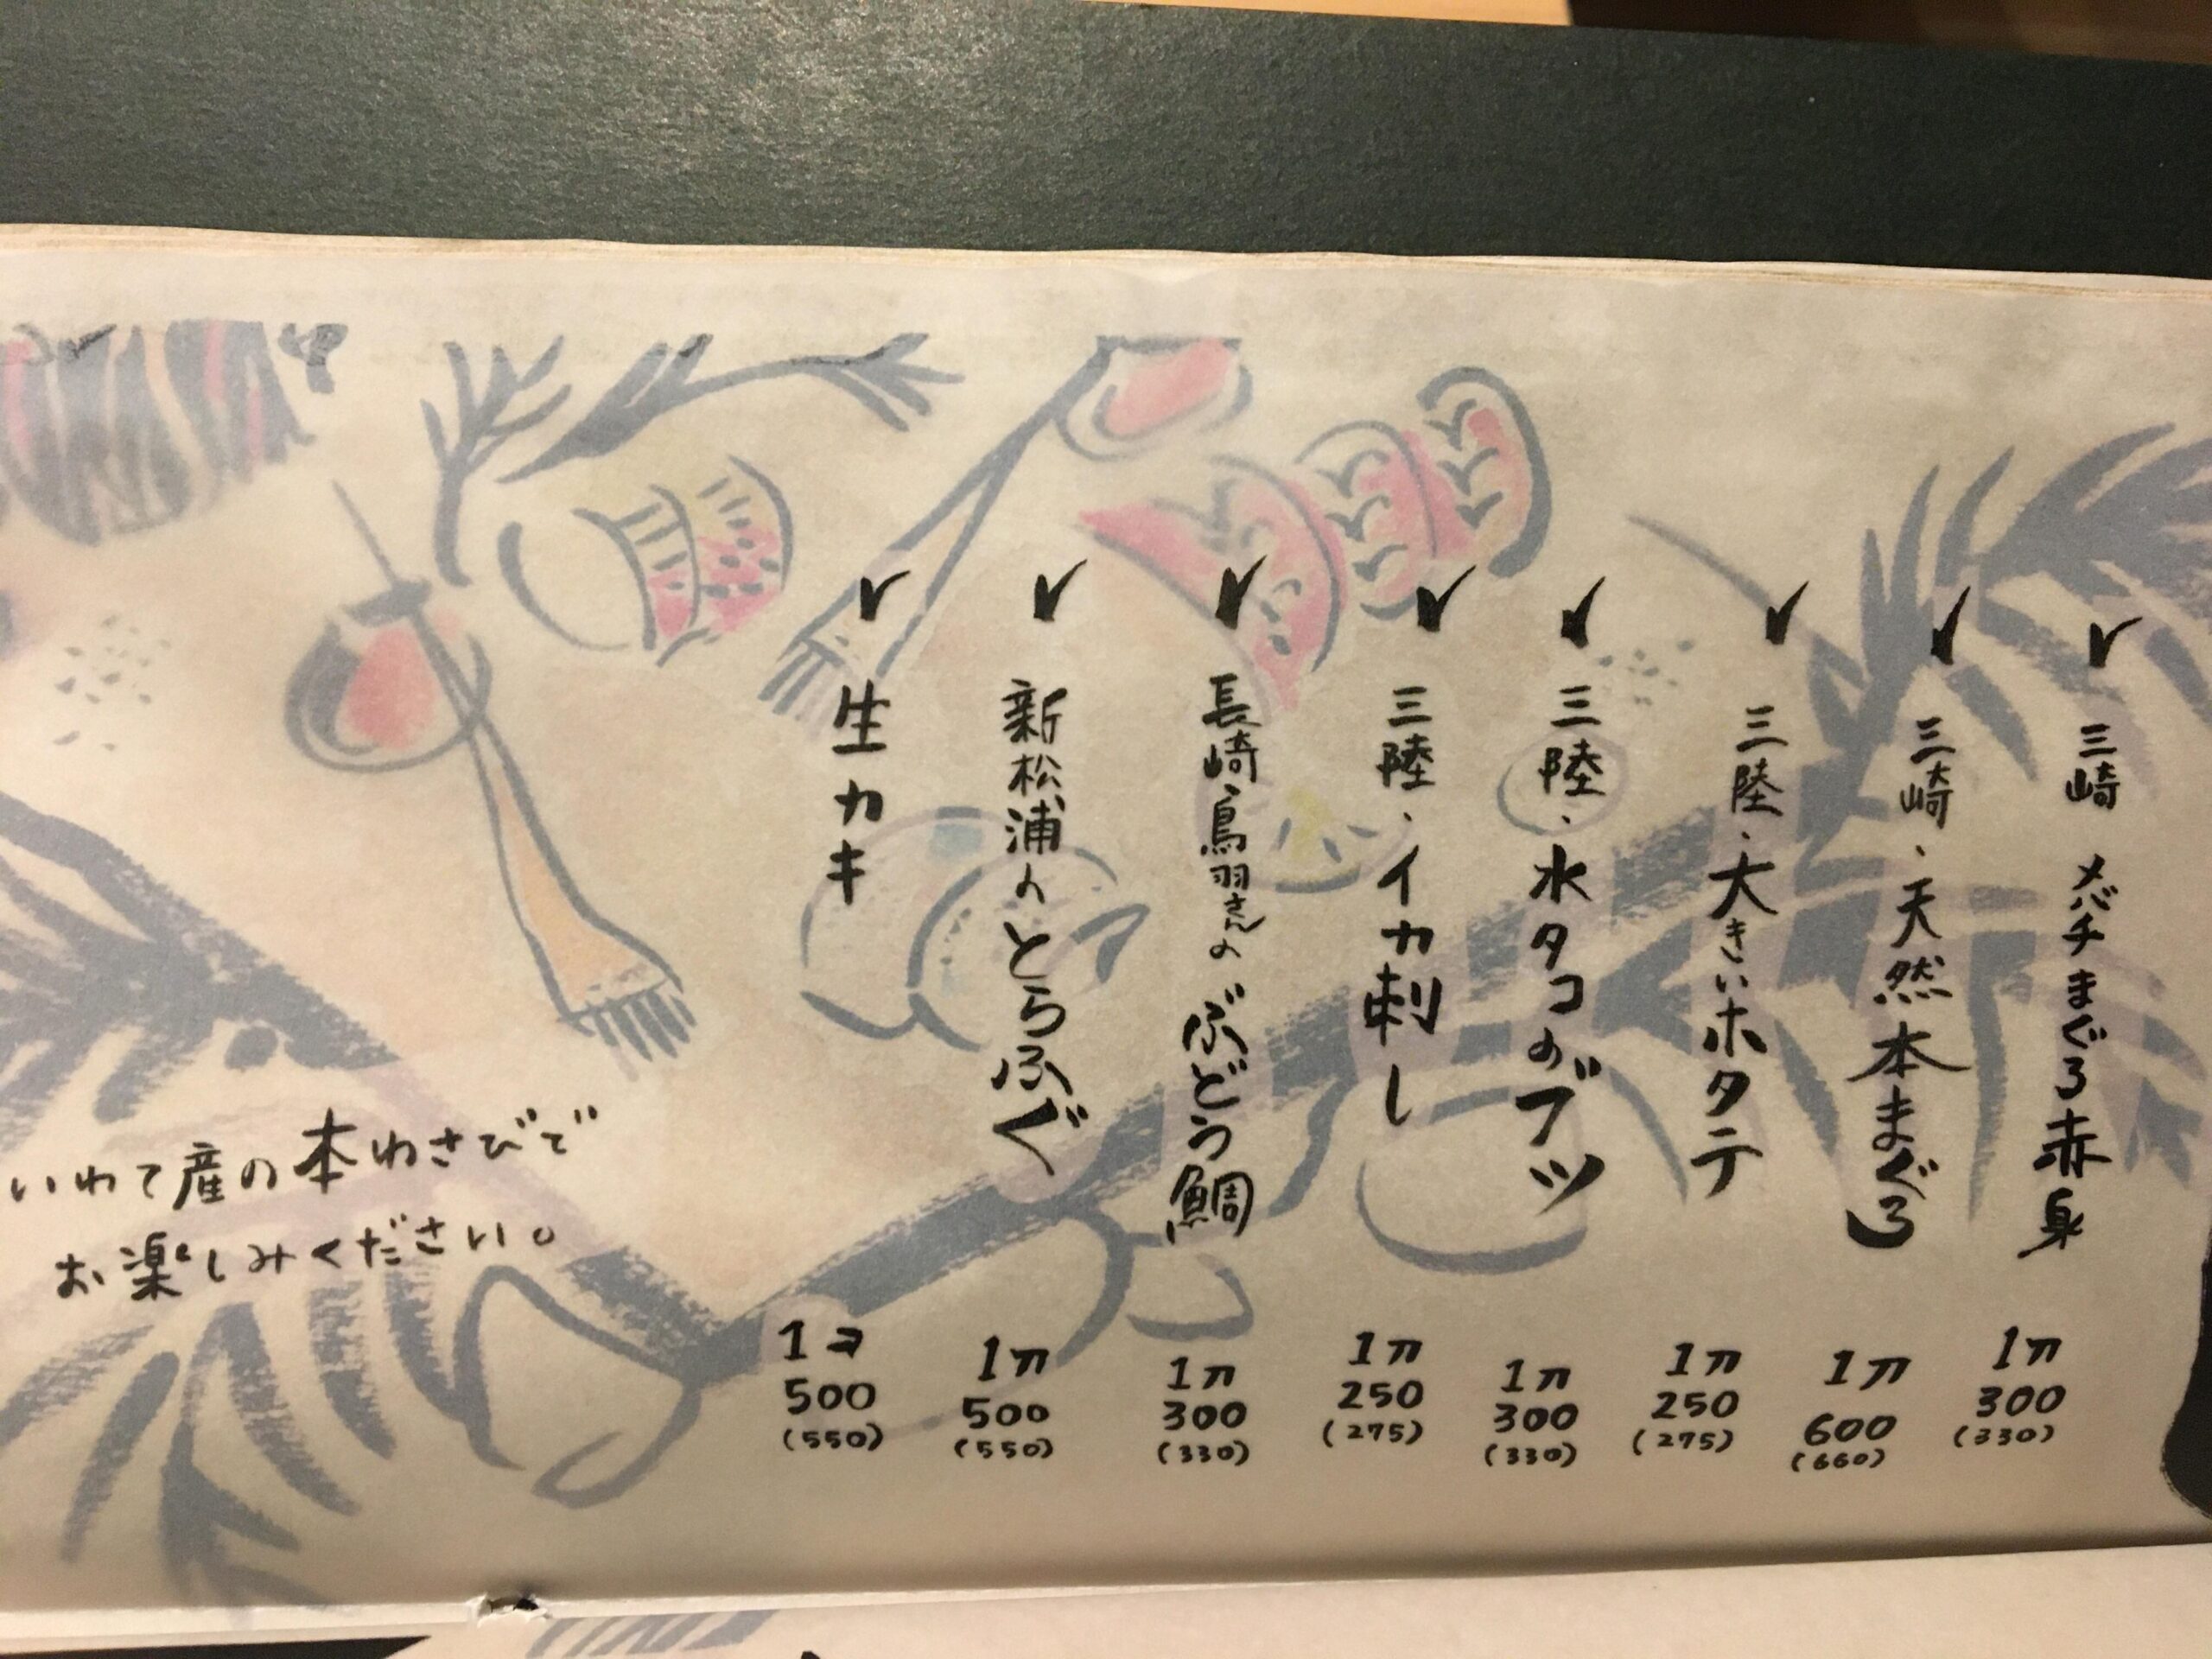 三崎 メバチまぐろ赤身
1ヶ
300
(330)
三崎、天然本まぐろ
1ヶ
600
(660)
三陸、大きいホタテ
1ヶ
250
(275)
三陸、水タコのブツ
1ヶ
300
(330)
三陸、イカ刺し
1ヶ
250
(275)
長崎、鳥羽さんの ぶどう鯛
1ヶ
300
(330)
新松浦のとらふぐ
1ヶ
500
(550)
生カキ
1コ
500
(550)
いわて産の本わさびで
お楽しみください。